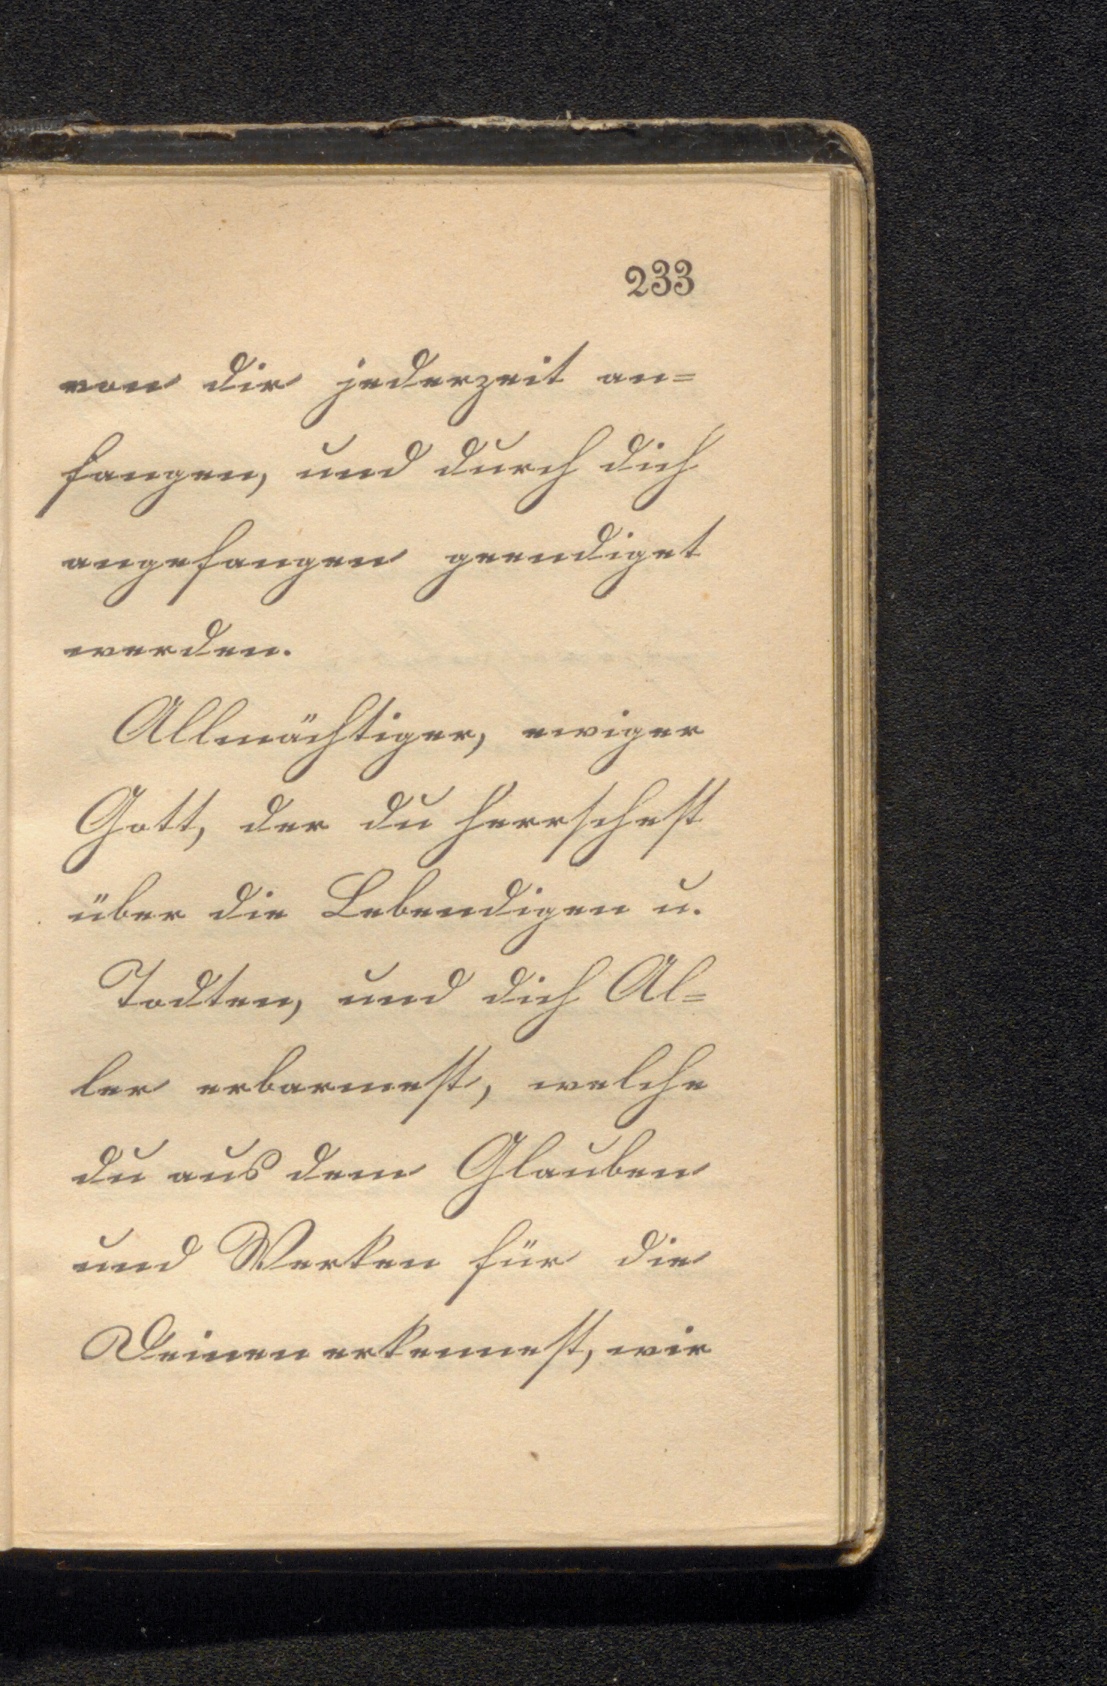 233
von dir jederzeit an=
fangen, und durch dich
angefangen geendiget
werden.
Allmächtiger, ewiger
Gott, der du herrschest
über die Lebendigen u.
Todten, und dich Al=
ler erbarmest, welche
du aus dem Glauben
und Werken für die
Deinen erkennest, wir